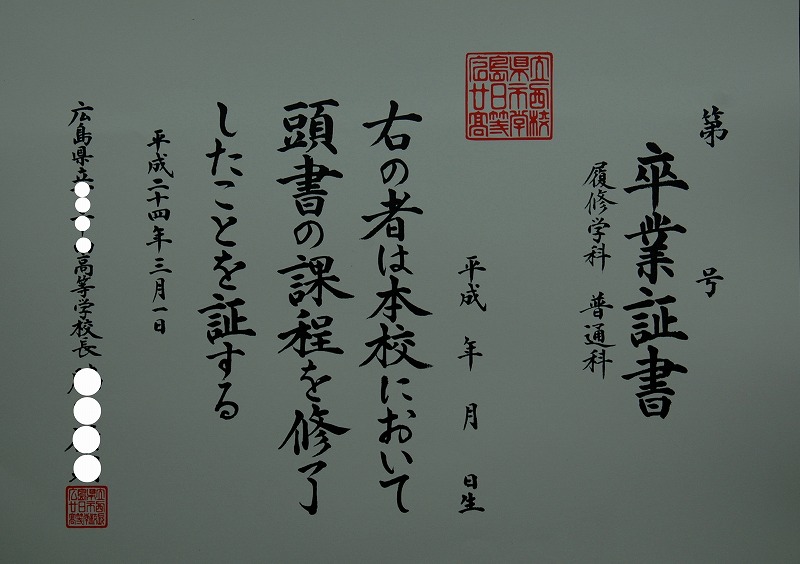 第　号
卒業証書
履修学科　普通科
広島県立
廿日市西
高等学校
平成　年　月　日生
右の者は本校において
頭書の課程を修了
したことを証する
平成二十四年三月一日
広島県立 高等学校長